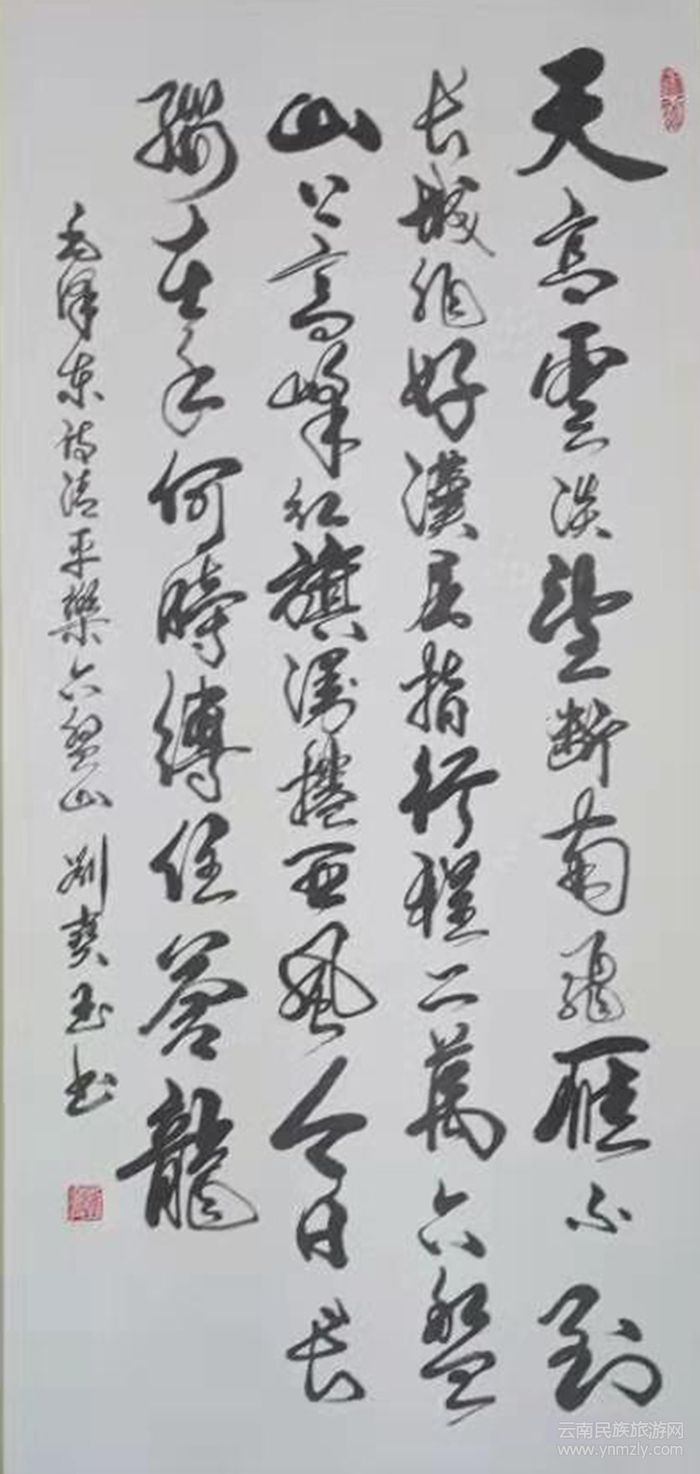 天高雲淡望斷南飛雁不到
长城非好漢屈指行程二萬六盤
山上高峰红旗漫捲西風今日长
纓在手何時縛住蒼龍
毛泽东诗清平樂六盤山 刘寶玉书
云南民族旅游网
www.ynmzly.com